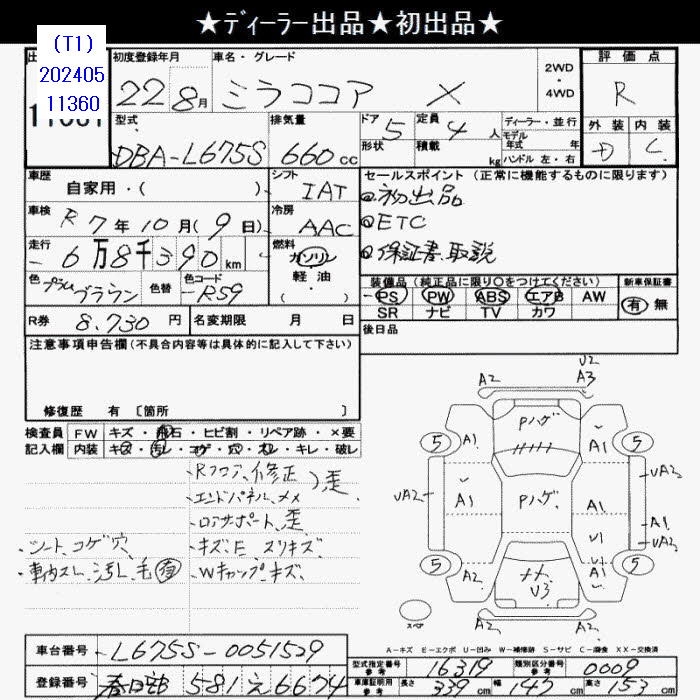 ★ディーラー出品★初出品★
(T1)
202405
11360
初度登録年月 車名・グレード 2WD・4WD 評価点
22 8月 ミラココア X R
型式 排気量 ドア 定員 ディーラー・並行 外装 内装
DBA-L675S 660cc 5 4人 モデル年式 年 D C
形状 積載 kg ハンドル 左・右
車歴 シフト セールスポイント(正常に機能するものに限ります)
自家用・( ) IAT ◎初出品
車検 R7年10月(9日) 冷房 AAC ◎ETC
走行 6万8千390km 燃料 ガソリン ◎保証書、取説
軽・油
色 プラムブラウン 色替 色コード R59
装備品(純正品に限り〇をつけてください) 新車保証書
PS PW ABS エアB AW 有 無
SR ナビ TV カワ
R券 8,730円 名変期限 月 日 後日品
注意事項申告欄(不具合内容等は具体的に記入して下さい)
修復歴 有 [箇所 ]
検査員 FW キズ・飛石・ヒビ割・リペア跡・×要
記入欄 内装 キズ・汚レ・コゲ・穴・スレ・キレ・破レ
・Rフロア、修正
・エンドパネル、メメ )歪
・ロアサポート、歪
・シート、コゲ穴 ・キズE、スリキズ
・車内スレ、汚レ、毛 有 ・Wキャップ、キズ
U2
A2 A3
Pハゲ
5 A1 A1 5
UA2 A1 Pハゲ A1 UA2
A1
U1 UA2
5 A2 メメ U3 U1 A1 5
A2 A2
スペア
A-キズ E-エクボ U-凹み W-補修跡 S-サビ C-腐食 XX-交換済
車台番号 L675S-0051529
型式指定番号 参考 16319 類別区分番号 参考 0009
登録番号 春日部 581 え 6674
車庫証明用 参考 長さ 339cm 幅 147cm 高さ 153cm